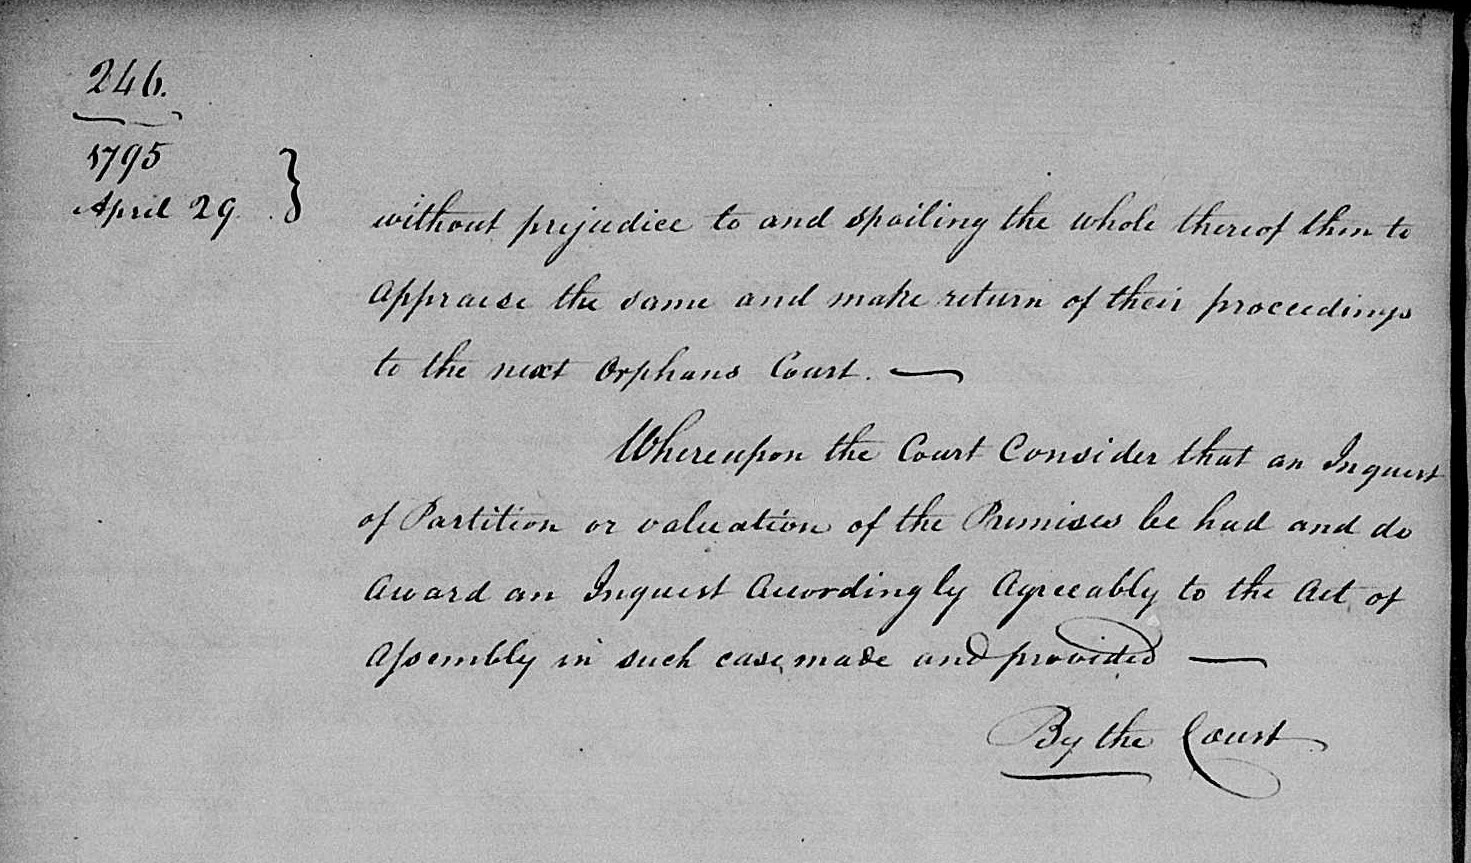 246.
1795
April 29 }
without prejudice to and spoiling the whole thereof then to
appraise the same and make return of their proceedings
to the next Orphans Court. —
Whereupon the Court Consider that an Inquest
of Partition or valuation of the Premises be had and do
award an Inquest Accordingly Agreeably to the Act of
Assembly in such case made and provided —
By the Court